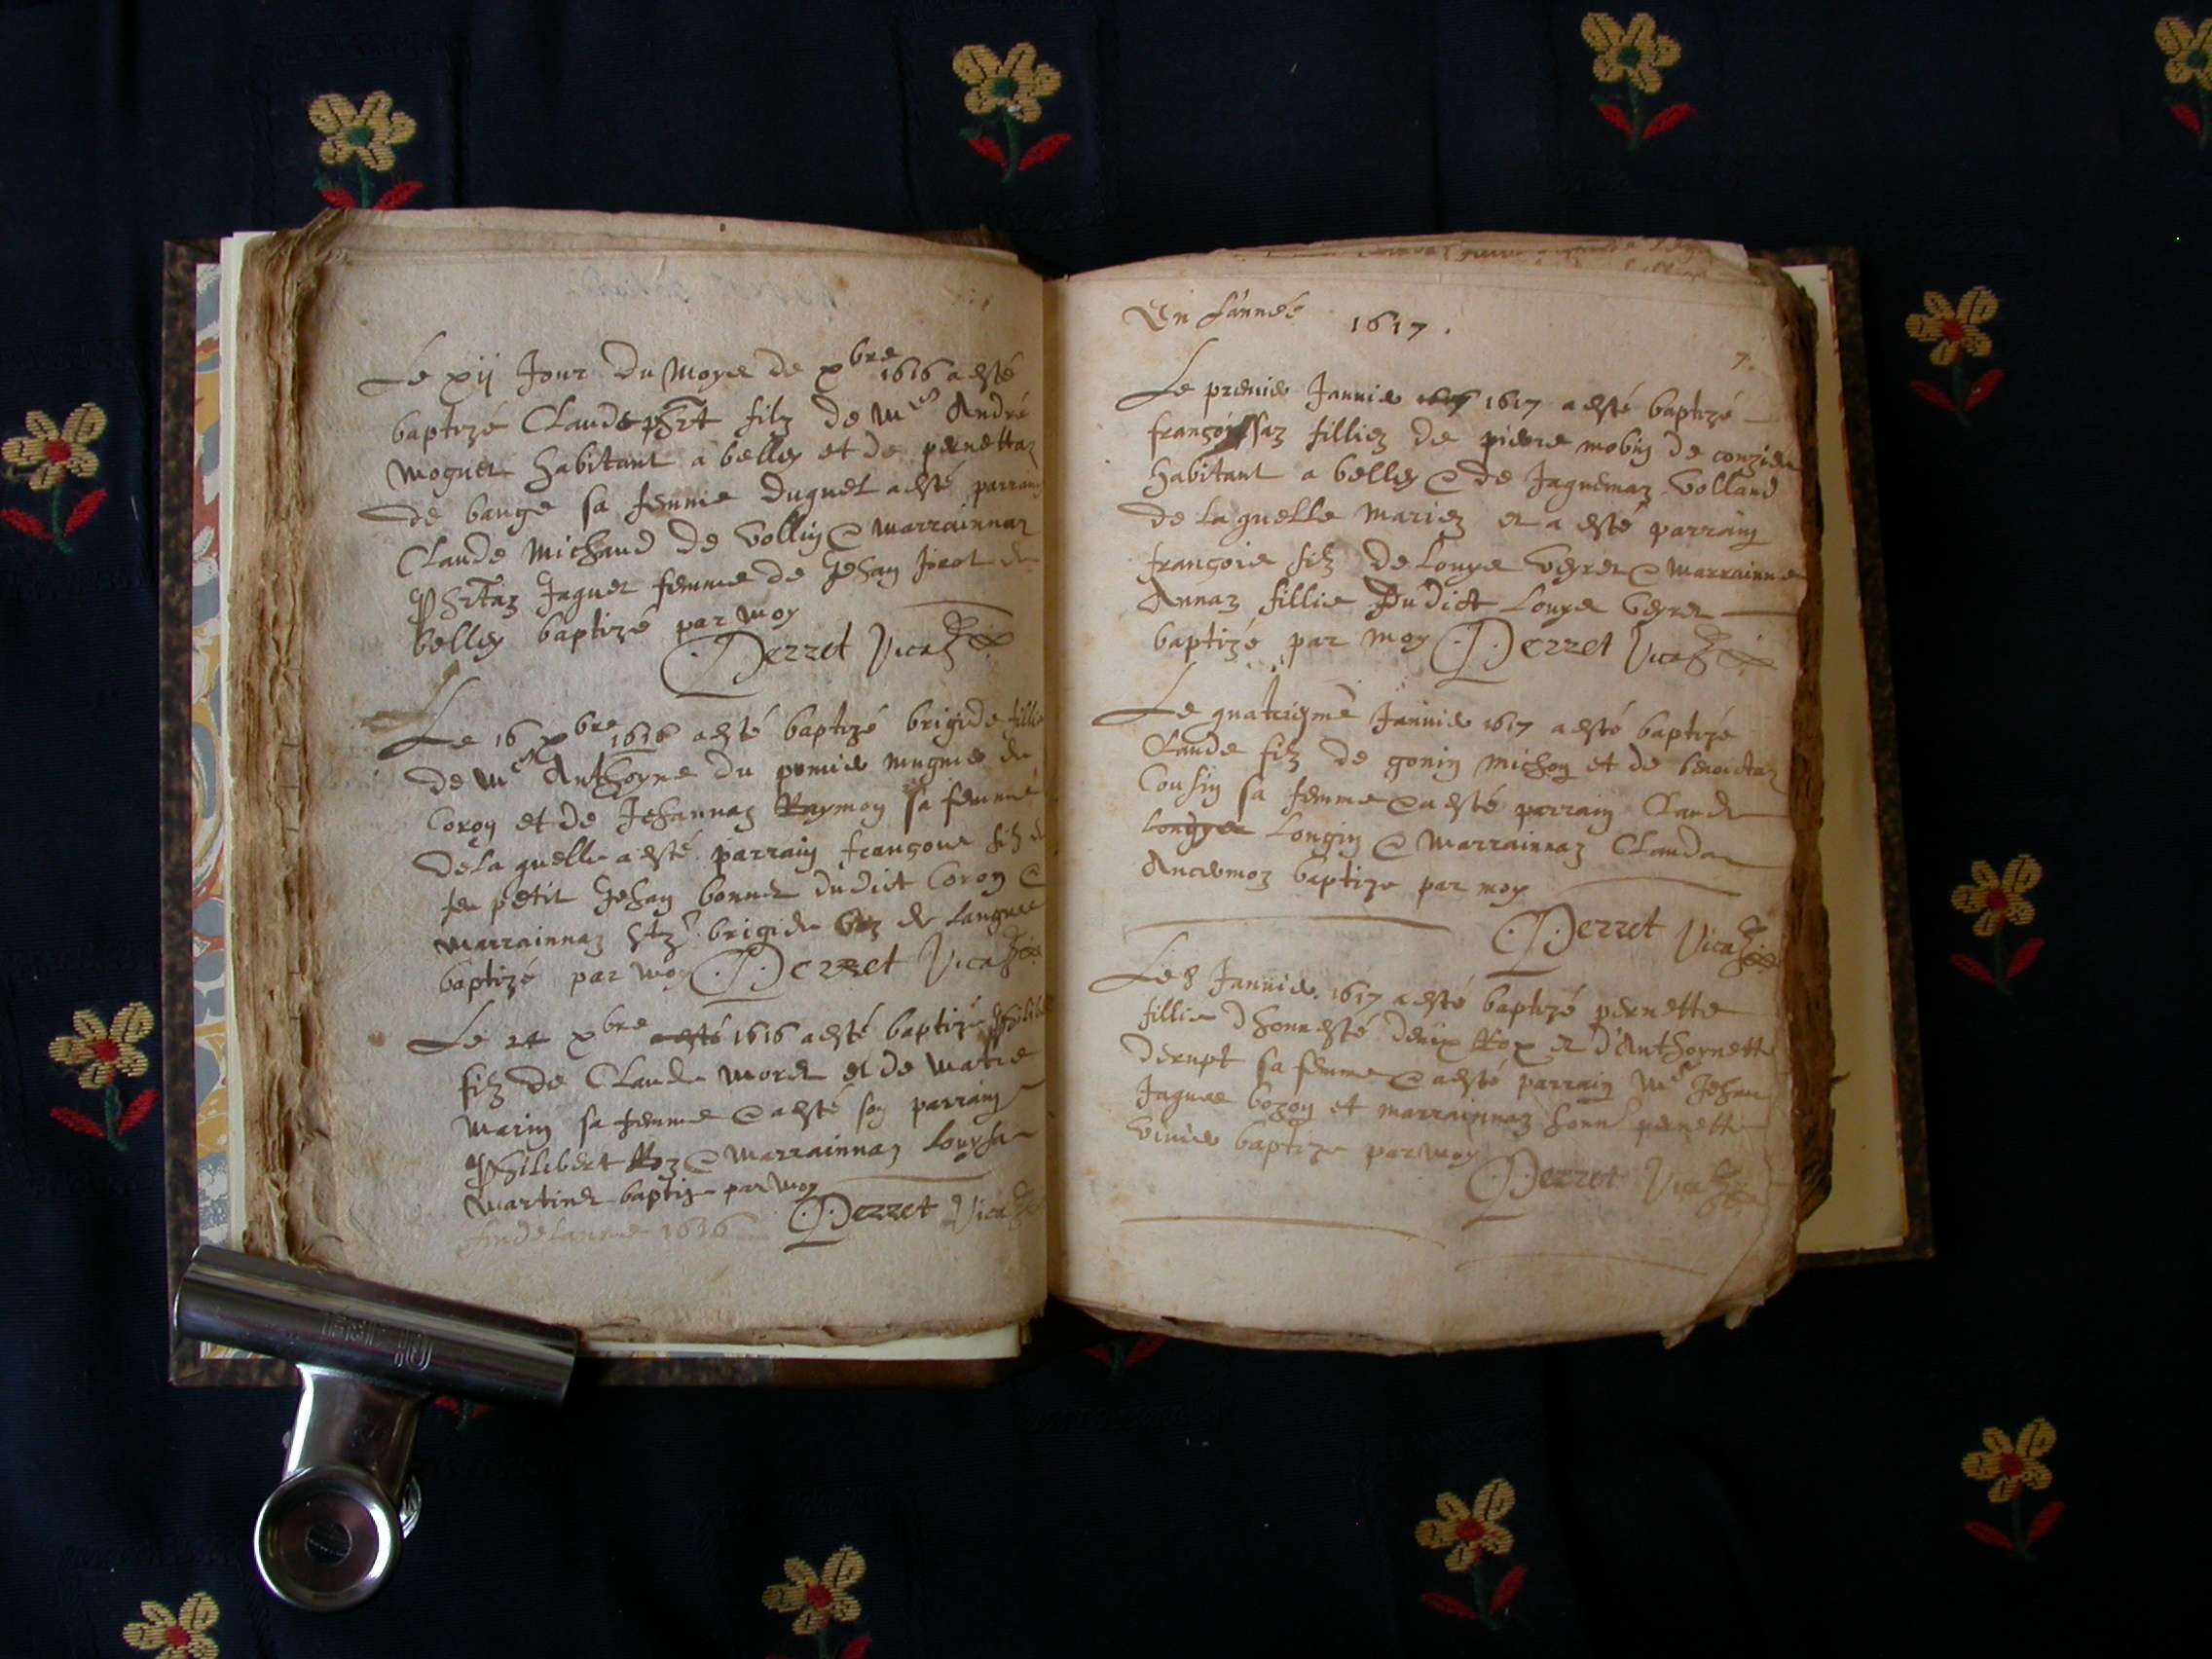 Le xij Jour du moys de xbre 1616 a esté
baptizé Claude filz de Mre André
moguet habitant a belley et de pernettaz
de bauge sa femme duquel a esté parrain
Claude Michaud de Vollin & marrainnaz
Jaquet femme de Jehan de
belley baptizé par moy
Perret Vicaire
Le 16 xbre 1616 a esté baptizé brigide fillie
de Mre Anthoyne du premier de
Coron et de Jehannaz Raymon sa femme
de laquelle a esté parrain françois filz de
feu petit Jehan bonnet dudict Coron &
marrainnaz brigide de
baptizé par moy Perret Vicaire
Le 24 xbre 1616 a esté baptizé philibert
filz de Claude moret et de
marin sa femme & a esté son parrain
Philibert & marrainnaz Louyse
martinet baptize par moy
Perret Vicaire
fin de lannee 1616
En l'année 1617.
7.
Le premier Janvier 1617 a esté baptizé
françoissaz filliez de pierre mobin de conzieu
habitant a belley & de Jaquemaz Volland
de laquelle mariez et a esté parrain
françois filz de Louys Veyret & marrainne
Annaz fillie dudict Louys Veyret
baptizé par moy Perret Vicaire
Le quatriesme Janvier 1617 a esté baptizé
Claude filz de gonin michon et de benoictaz
Cousin sa femme & a esté parrain Claude
Longin & marrainnaz Clauda
baptize par moy
Perret Vicaire
Le 8 Janvier 1617 a esté baptizé pernette
fillie d'honnesté Rox et d'Anthoynette
derupt sa femme & a esté parrain Mre Jehan
Jaques bozon et marrainnaz honn pernette
baptize par moy
Perret Vicaire